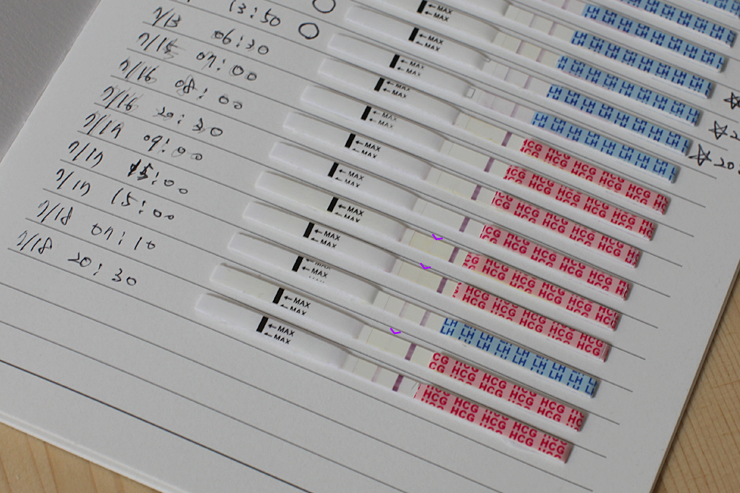 13:50
7/13 06:30
7/15 07:00
7/16 08:00
7/16 20:30
7/17 09:00
7/17 15:00
7/17 15:00
7/18 07:10
7/18 20:30
←MAX ←MAX LH LH LH LH LH LH LH
←MAX ←MAX LH LH LH LH LH LH LH
←MAX ←MAX LH LH LH LH LH LH LH
←MAX ←MAX LH LH LH LH LH LH LH
←MAX ←MAX LH LH LH LH LH LH LH
←MAX ←MAX HCG HCG HCG HCG HCG
←MAX ←MAX HCG HCG HCG HCG HCG
←MAX ←MAX HCG HCG HCG HCG HCG
←MAX ←MAX HCG HCG HCG HCG HCG
←MAX HCG HCG HCG HCG HCG
←MAX ←MAX LH LH LH LH LH LH LH
←MAX ←MAX HCG HCG HCG HCG HCG
HCG HCG HCG HCG HCG